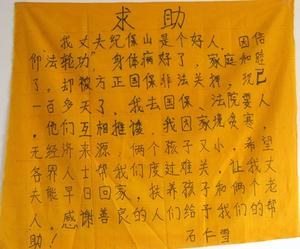 求助
我丈夫纪保山是个好人，因信
仰“法轮功”身体病好了，家庭和睦
了，却被方正国保非法关押，现已
一百多天了，我去国保、法院要人
，他们互相推诿，我因家境贫寒，
无经济来源，俩个孩子又小，希望
各界人士帮我们度过难关，让我丈
夫能早日回家，扶养孩子和俩个老
人。感谢善良的人们给于我们的帮
助！
石仁雪